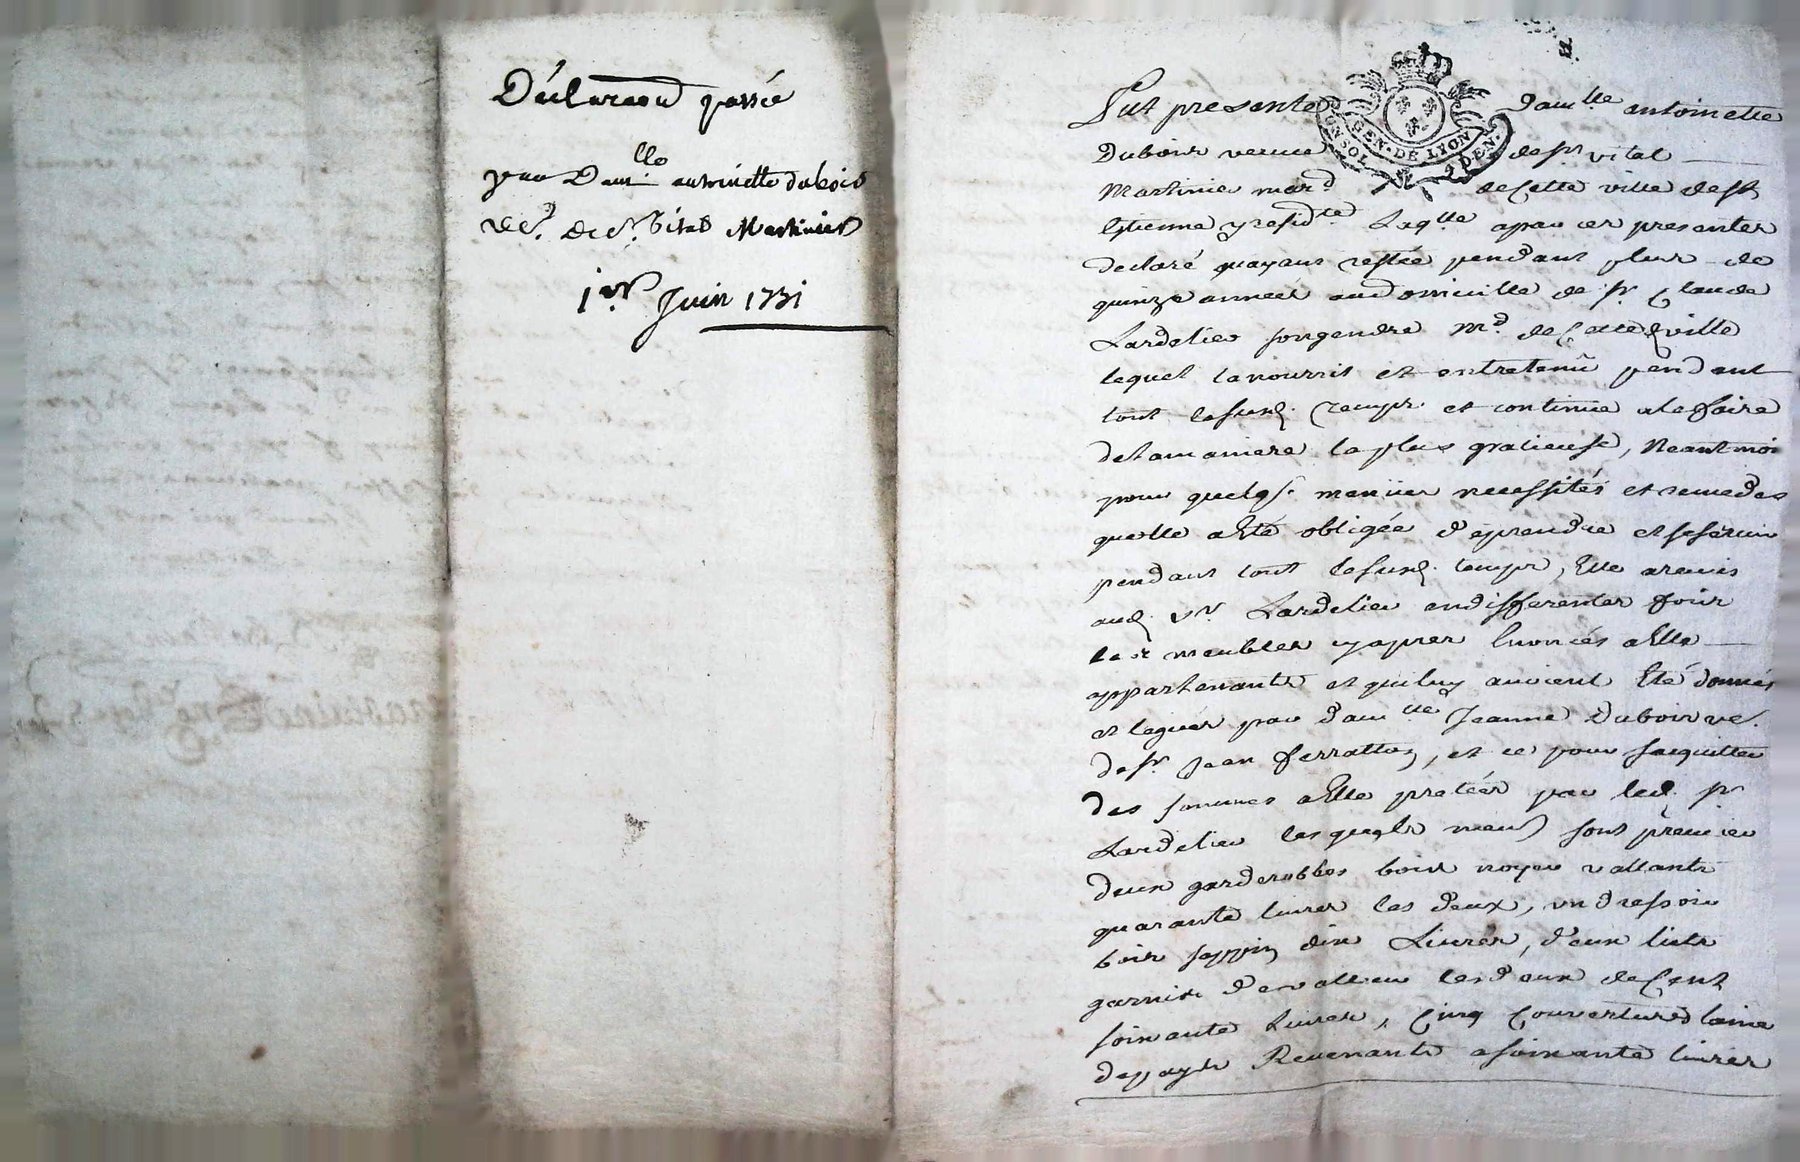 Déclaraôn passée
par Damlle antoinette dubois
ve. de sr. Vital Martinier
1er Juin 1731
GEN. DE LYON
UN SOL 2 DEN.
Fut presente damlle antoinette
Dubois veuve de sr vital
Martinier mard de cette ville de st
Etienne y residte Laqlle a par ces presentes
declaré qu'ayant restée pendant plus de
quinze années au domicille de sr Claude
Lardelier son gendre Md. de cette ville
lequel la nourrit et entretenu pendant
tout le susd. temps et continue a le faire
de la maniere la plus gratieuse, Neantmoi
pour quelqs. menües necessités et remedes
quelle a Eté obligée de prendre et se servir
pendant tout le susd. temps, Elle a remis
aud. sr. Lardelier en differentes fois
les meubles cy apres Enoncés a Elle
appartenants et qui luy avoient Eté donnés
et legués par damlle Jeanne Dubois ve.
de sr Jean ferratton, et ce pour s'acquitter
des sommes a Elle pretées par led. sr
Lardelier lesquels meub sont premier
deux garderobbes bois noyer vallants
quarante livres les deux, un dressoir
bois sappin dix Livres, deux licts
garnis de valleur les deux de Cent
soixante Livres, Cinq Couvertures laine
de pays Revenants a soixante livres